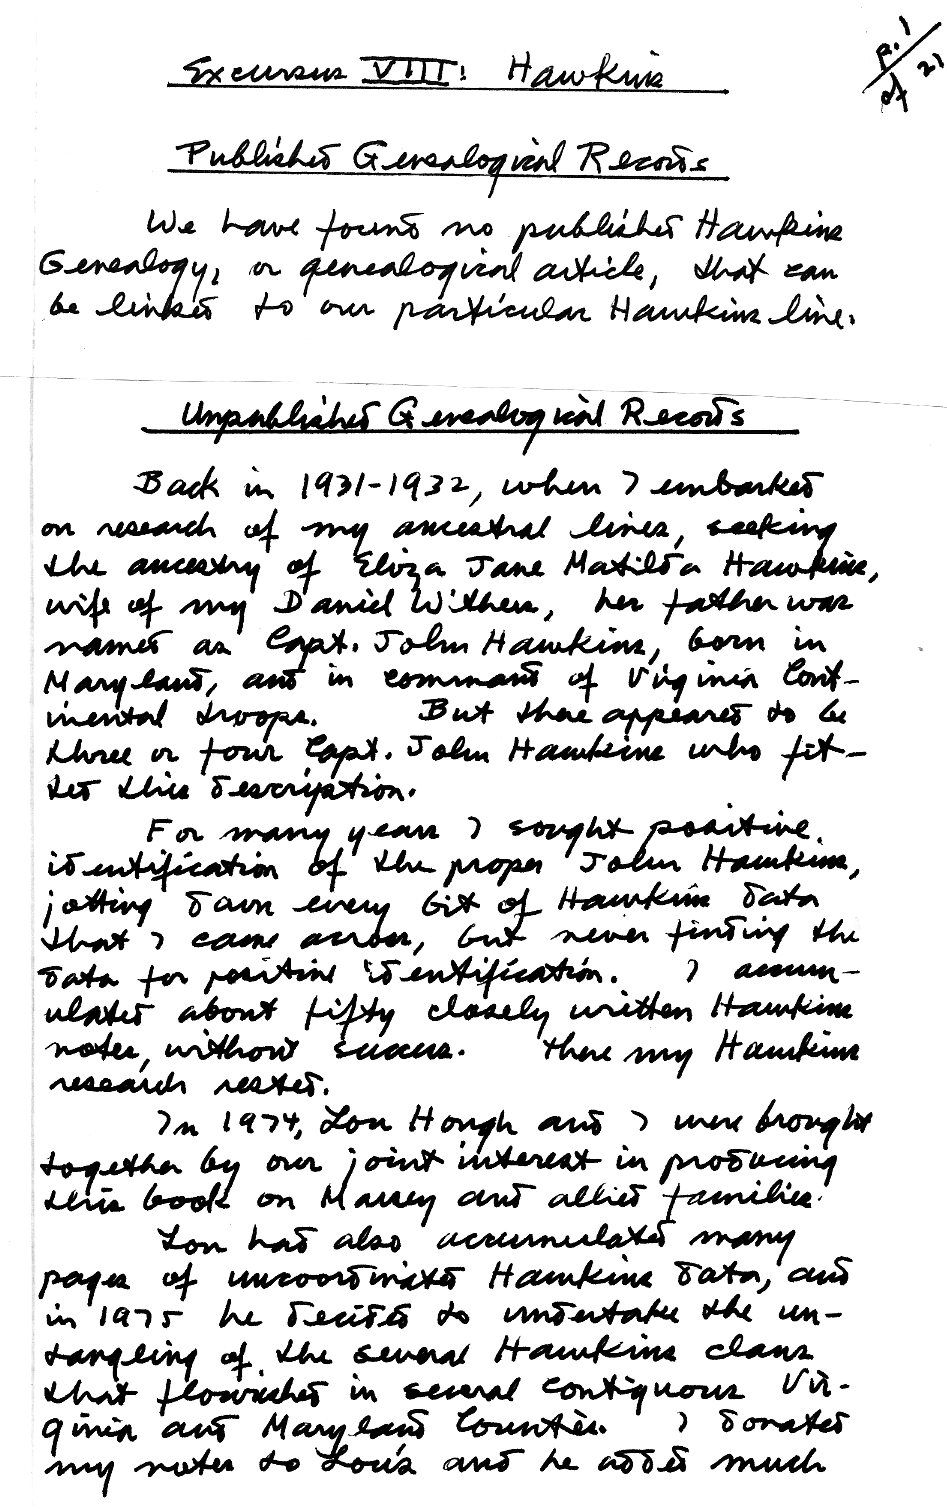 p. 1
of 21
Excursus VIII: Hawkins
Published Genealogical Records
We have found no published Hawkins
Genealogy, or genealogical article, that can
be linked to our particular Hawkins line.
Unpublished Genealogical Records
Back in 1931-1932, when I embarked
on research of my ancestral lines, seeking
the ancestry of Eliza Jane Matilda Hawkins,
wife of my Daniel Withers, her father was
named as Capt. John Hawkins, born in
Maryland, and in command of Virginia Cont-
inental troops. But there appeared to be
three or four Capt. John Hawkins who fit-
ted this description.
For many years I sought positive
identification of the proper John Hawkins,
jotting down every bit of Hawkins data
that I came across, but never finding the
data for positive identification. I accum-
ulated about fifty closely written Hawkins
notes, without success. There my Hawkins
research rested.
In 1974, Lou Hough and I were brought
together by our joint interest in producing
this book on Massey and allied families.
Lou had also accumulated many
pages of uncoordinated Hawkins data, and
in 1975 he decided to undertake the un-
tangling of the several Hawkins clans
that flourished in several contiguous Vir-
ginia and Maryland Counties. I donated
my notes to Lou's and he added much